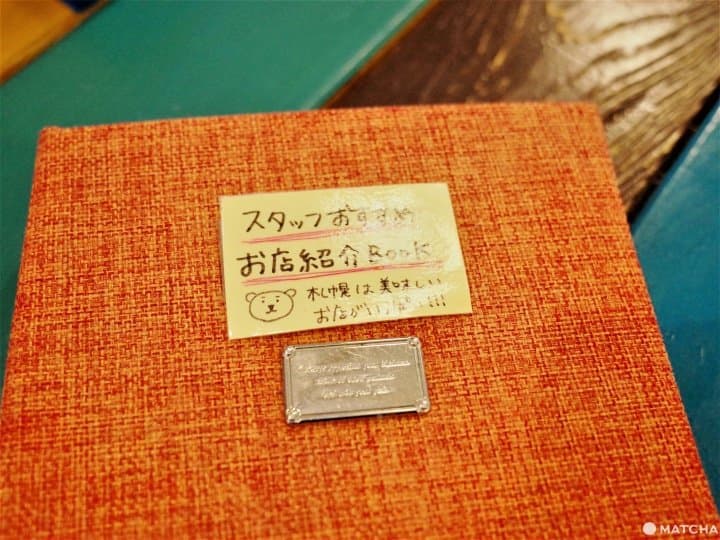 スタッフおすすめ
お店紹介BOOK
札幌は美味しい
お店がいっぱい!!!
MATCHA